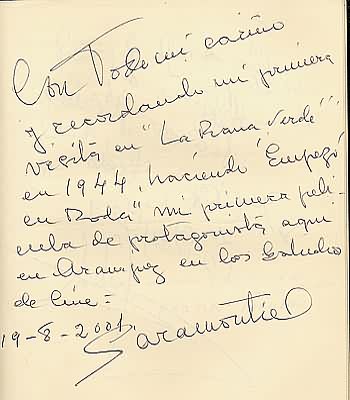 Con Todo mi cariño
y recordando mi primera
vesita en "La Rana Verde"
en 1944, haciendo "Empezó
en Boda" mi primera peli-
cula de protagonista aqui
en Aranjuez en los Estudios
de Cine =
19-8-2001.
Saramontiel